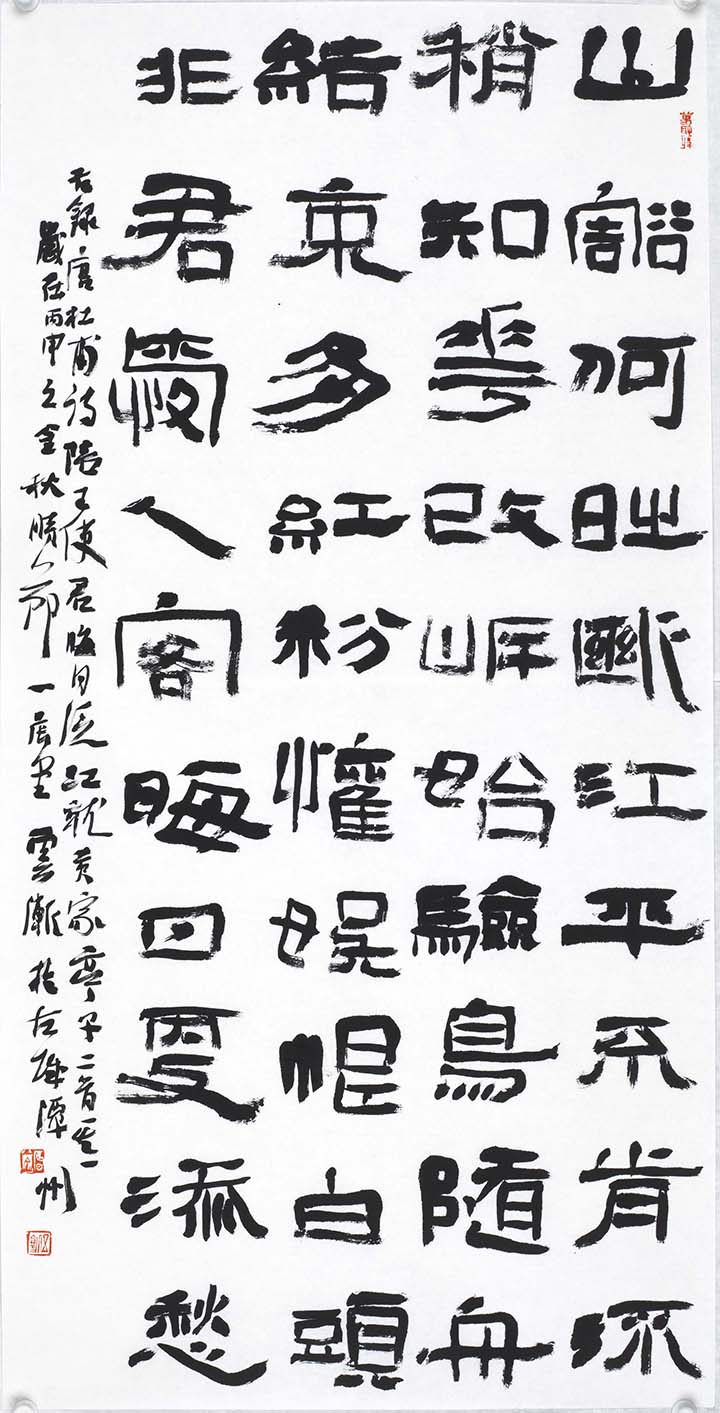 山豁何時斷江平不肯流
稍知花改岸始驗鳥隨舟
結束多紅粉懽娛恨白頭
非君愛人客晦日更添愁
右錄唐杜甫詩陪王使君晦日泛江就黃家亭子二首其一
歲在丙申之金秋時節一堂雲漸於古城潭州